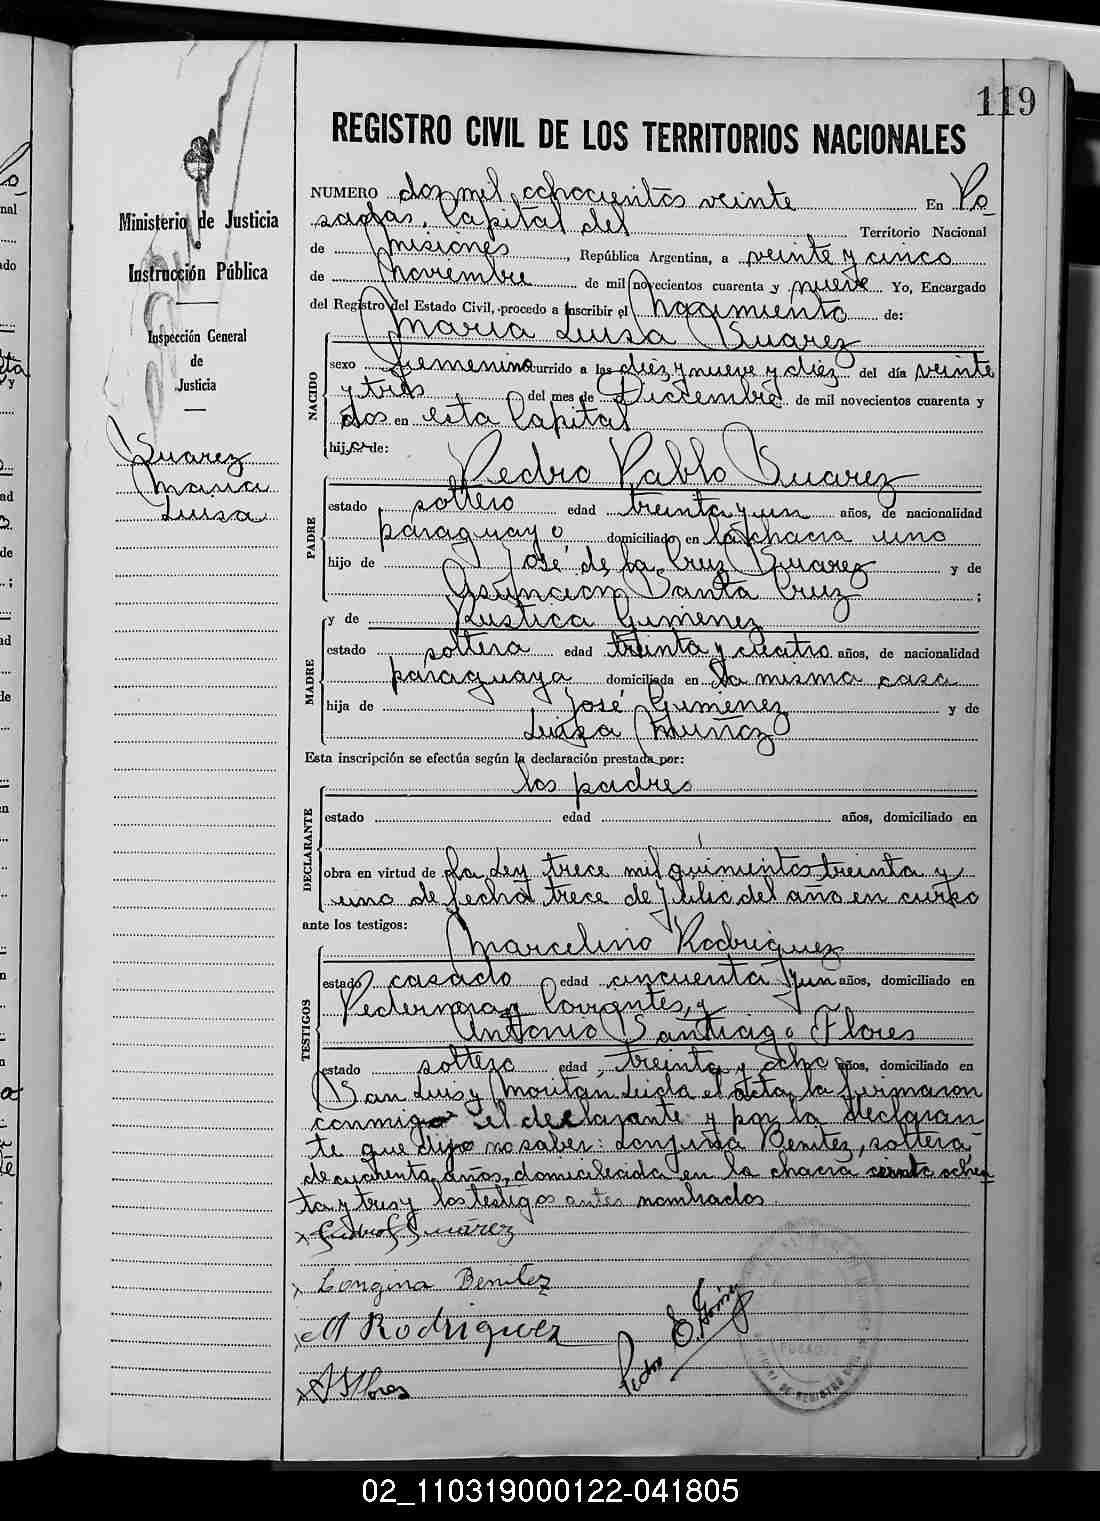 119
REGISTRO CIVIL DE LOS TERRITORIOS NACIONALES
Ministerio de Justicia
e
Instrucción Pública
Inspección General
de
Justicia
Suarez
Maria
Luisa
NUMERO dos mil ochocientos veinte En Po
sadas, Capital del Territorio Nacional
de Misiones, República Argentina, a veinte y cinco
de Noviembre de mil novecientos cuarenta y nueve Yo, Encargado
del Registro del Estado Civil, procedo a inscribir el Nacimiento de:
Maria Luisa Suarez
NACIDO
sexo Femenino ocurrido a las diez y nueve y diez del día veinte
y tres del mes de Diciembre de mil novecientos cuarenta y
dos en esta Capital
hija de:
Pedro Pablo Suarez
PADRE
estado soltero edad treinta y un años, de nacionalidad
paraguayo domiciliado en la chacra uno
hijo de José de la Cruz Suarez y de
Asuncion Santa Cruz ;
y de Rustica Gimenez
MADRE
estado soltera edad treinta y cuatro años, de nacionalidad
paraguaya domiciliada en la misma casa
hija de José Gimenez y de
Luisa Muñoz
Esta inscripción se efectúa según la declaración prestada por:
los padres
DECLARANTE
estado edad años, domiciliado en
obra en virtud de la Ley trece mil quinientos treinta y
uno de fecha trece de Julio del año en curso
ante los testigos:
Marcelino Rodriguez
TESTIGOS
estado casado edad cincuenta y un años, domiciliado en
Pedernera y Corrientes, y
Antonio Santiago Flores
estado soltero edad, treinta y ocho años, domiciliado en
San Luis y Moritan Leida el acta la firmaron
conmigo el declarante y por la declaran
te que dijo no saber: Longina Benitez, soltera
de cuarenta años, domiciliada en la chacra ciento ochen
ta y tres y los testigos antes nombrados.
x Pedro P Suárez
x Longina Benitez
x M Rodriguez
x A S Flores
Pedro E. Gómez
POSADAS
02_110319000122-041805